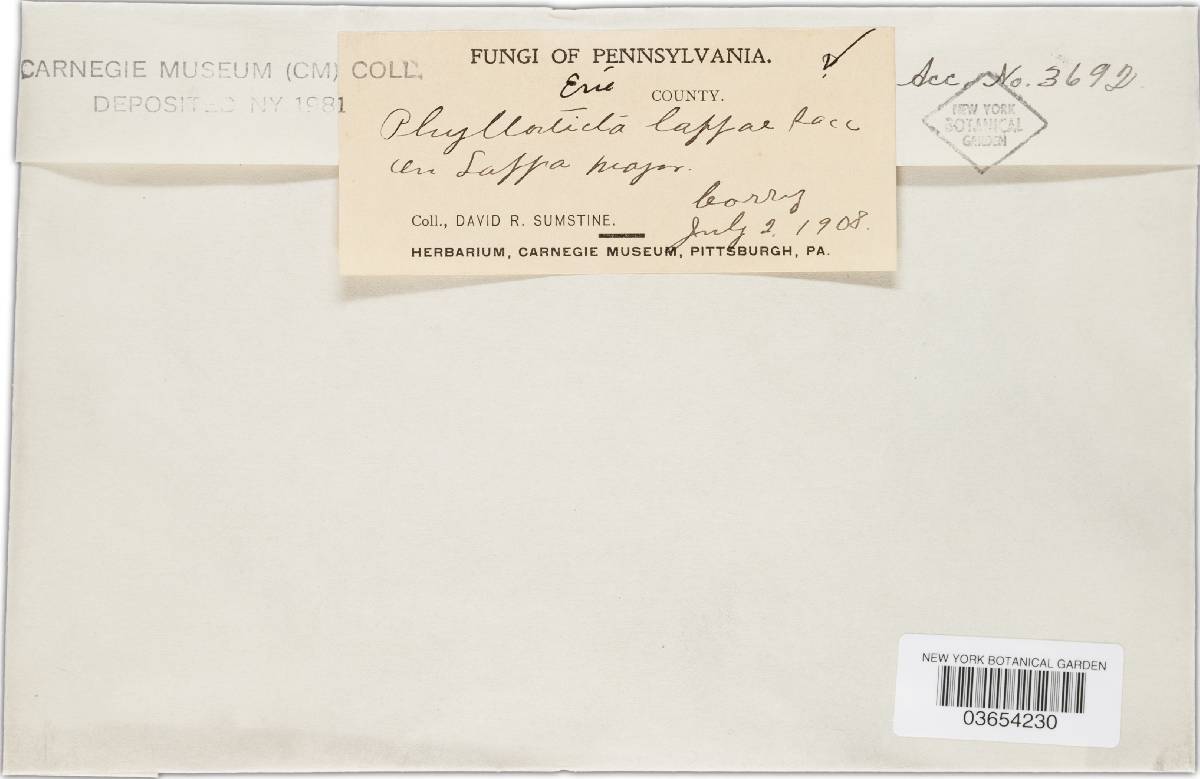 CARNEGIE MUSEUM (CM) COLL.
DEPOSITED NY 1981
FUNGI OF PENNSYLVANIA.
Erie COUNTY.
Phyllosticta lappae Sacc
on Lappa major.
Corry
Coll., DAVID R. SUMSTINE.
July 2. 1908.
HERBARIUM, CARNEGIE MUSEUM, PITTSBURGH, PA.
Acc. No. 3692
NEW YORK
BOTANICAL
GARDEN
NEW YORK BOTANICAL GARDEN
03654230